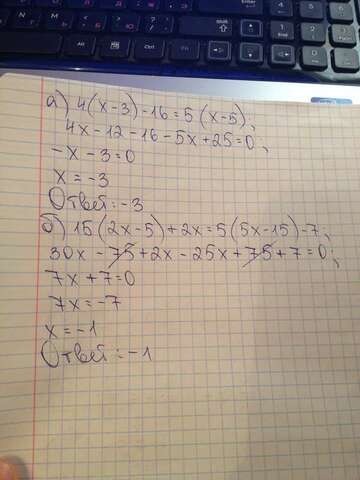 Shift
Enter
End
Alt
Ctrl
Fn
а) 4(x-3)-16=5(x-5);
4x-12-16-5x+25=0;
-x-3=0
x=-3
Ответ:-3
б) 15(2x-5)+2x=5(5x-15)-7;
30x-75+2x-25x+75+7=0;
7x+7=0
7x=-7
x=-1
Ответ:-1